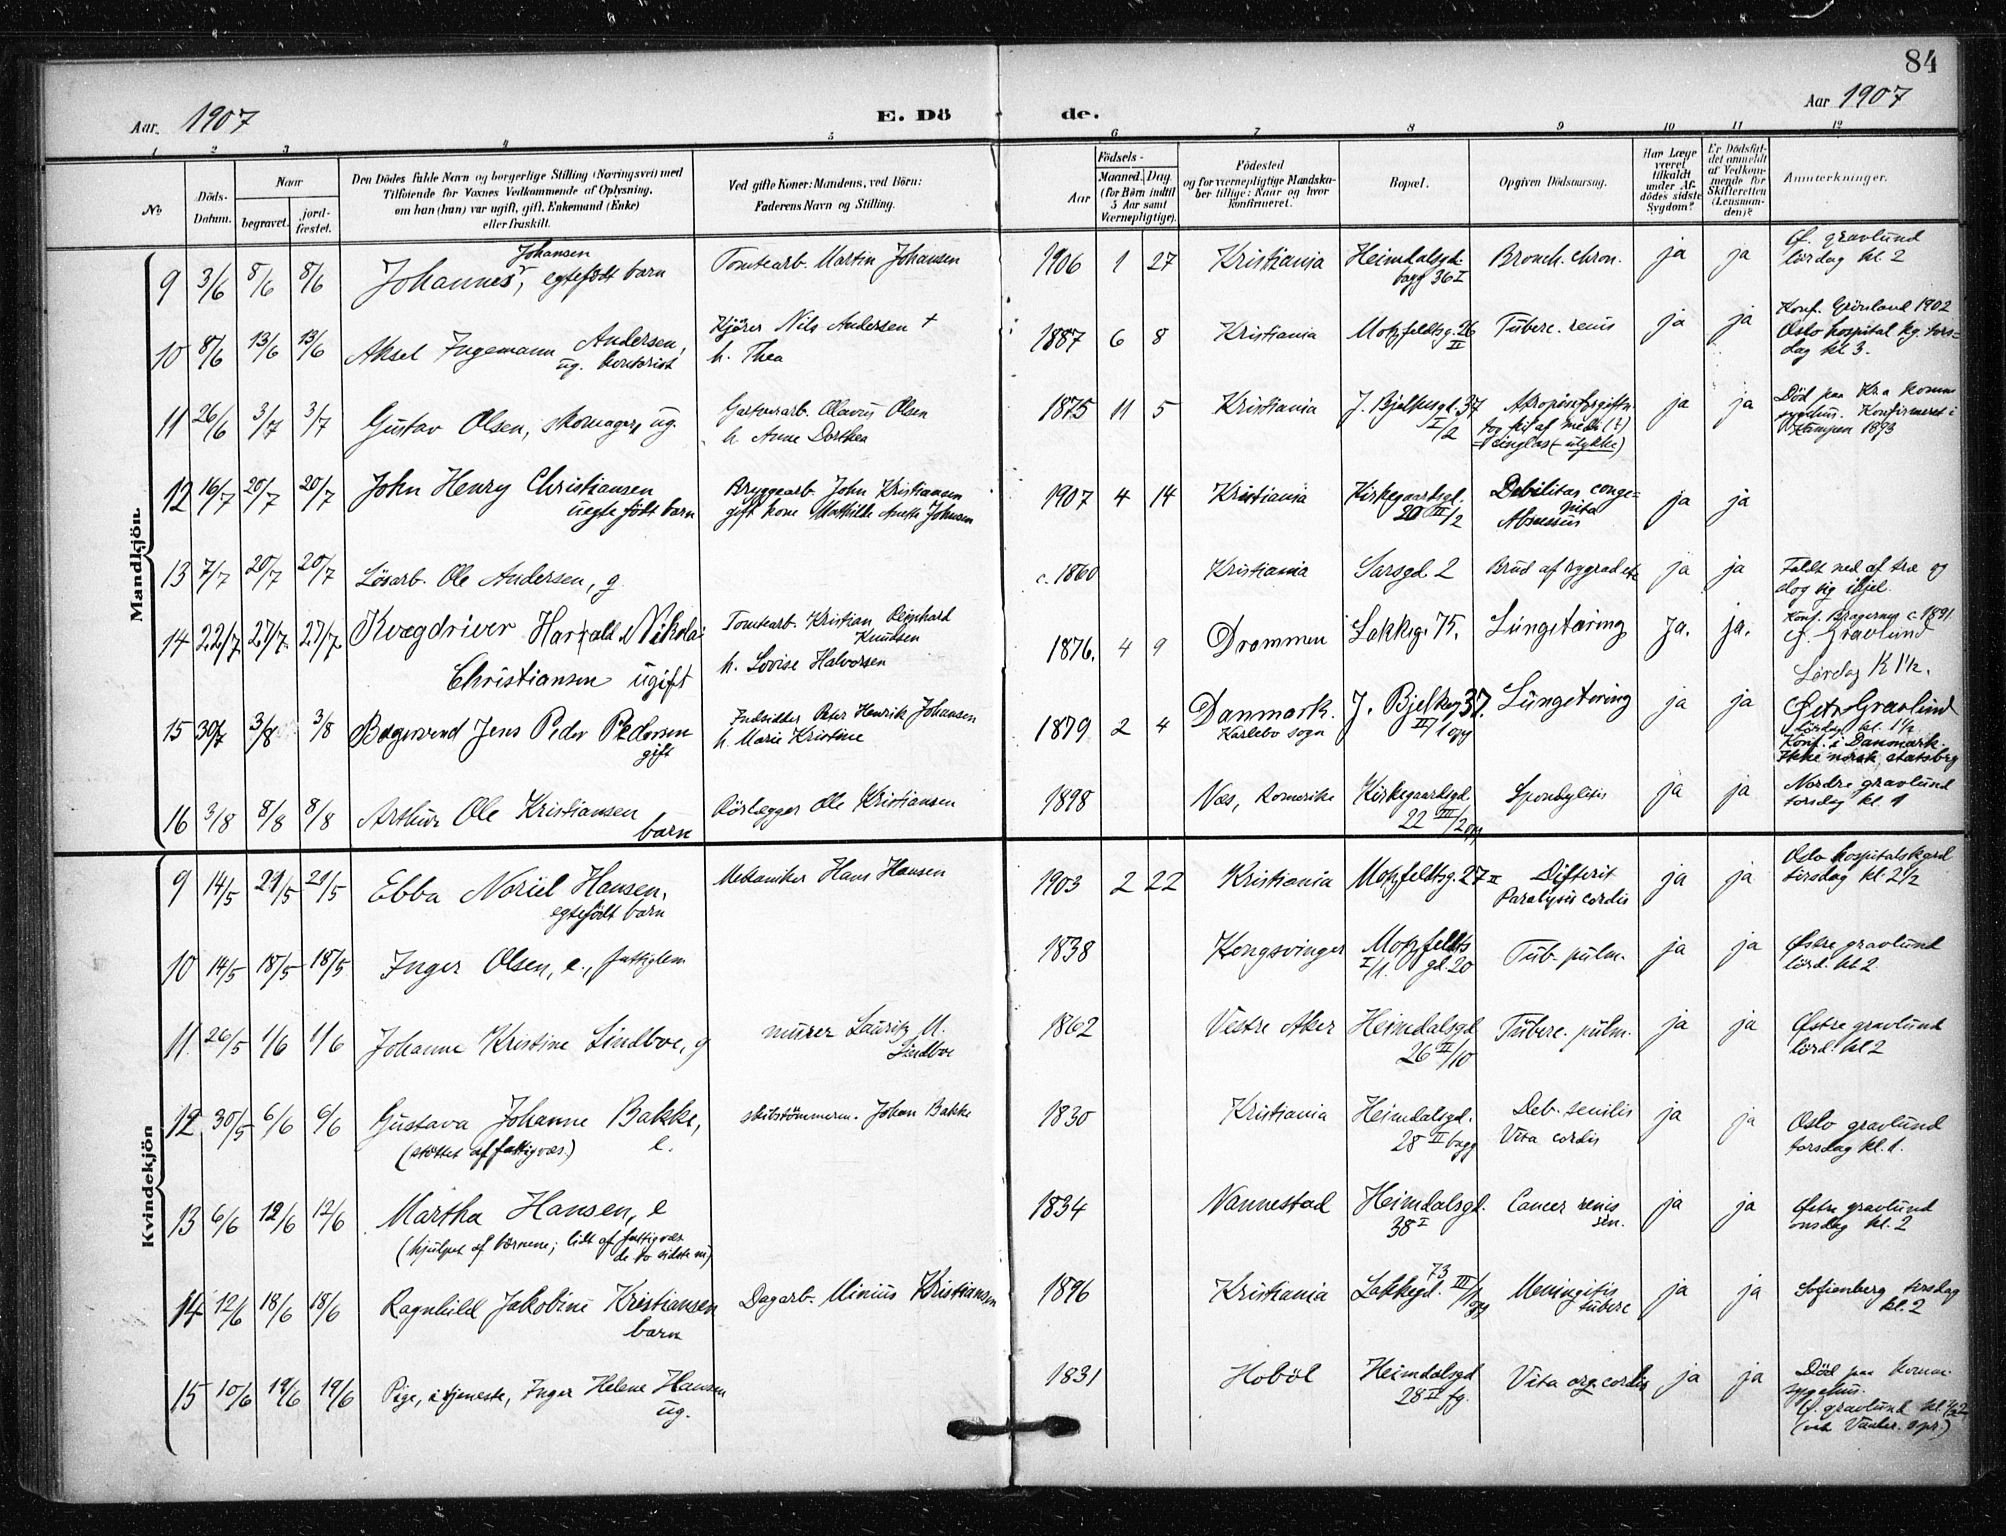 84
Aar. 1907
E. Dö de.
Aar 1907
1 2 3 4 5 6 7 8 9 10 11 12
No.
Döds-Datum.
Naar
begravet.
jord-fæstet.
Den Dödes fulde Navn og borgerlige Stilling (Næringsvei) med
Tilföiende for Voxnes Vedkommende af Oplysning,
om han (hun) var ugift, gift, Enkemand (Enke)
eller fraskilt.
Ved gifte Koner: Mandens, ved Börn:
Faderens Navn og Stilling.
Aar
Födsels-
Maaned. Dag.
(for Börn indtil
5 Aar samt
Værnepligtige).
Födested
og for værnepligtige Mandska-
ber tillige: Naar og hvor
konfirmeret.
Bopæl.
Opgiven Dödsaarsag.
Har Læge
været
tilkaldt
under Af-
dödes sidste
Sygdom?
Er Dödsfal-
det anmeldt
af Vedkom-
mende for
Skifteretten
(Lensman-
den)?
Anmerkninger.
Mandkjön.
9 3/6 8/6 8/6 Johannes Johansen, egtefödt barn Tomtearb. Martin Johansen 1906 1 27 Kristiania Heimdalsgd. bagg 36 I Bronch. chron. ja ja Ø. gravlund lördag kl. 2
10 8/6 13/6 13/6 Aksel Ingemann Andersen, ug. kontorist Kjörer Nils Andersen + h. Thea 1887 6 8 Kristiania Motzfeldtsg. 26 II Tuberc. renis ja ja Konf. Grönland 1902 Oslo hospital kg. tors-dag kl 3.
11 26/6 3/7 3/7 Gustav Olsen, skomager, ug. Gartnerarb. Olavus Olsen h. Anne Dorthea 1875 11 5 Kristiania J. Bjelkesgd. 37 I/2 Atropinforgiftn. (ulykke) ja ja Död paa Kr.a komm sygehus. Konfirmeret i Kampen 1893
12 16/7 20/7 20/7 John Henry Christiansen uegte födt barn Bryggearb. John Kristiansen gift kone Mathilde Johnsen 1907 4 14 Kristiania Kirkegaardsgd. 20 III/2 Debilitas conge-nita Abscessus ja ja
13 7/7 20/7 20/7 Lösarb. Ole Andersen, g. c. 1860 Kristiania Sarsgd 2 Brud af rygrad etc ja ja Faldt ned af træ og slog sig ihjel.
14 22/7 27/7 27/7 Kvægdriver Harald Nikolai Christiansen ugift Tomtearb. Kristian Reinhard Knudsen h. Lovise Halvorsen 1876. 4 9 Drammen Lakkeg. 75. Lungetæring ja. ja. Konf. Bragernes c. 1891 Ø. Gravlund Lördag K 1½.
15 30/7 3/8 3/8 Bagersvend Jens Peder Pedersen gift Indsidder Peter Henrik Johansen h. Marie Kristine 1879 2 4 Danmark. Karlebo sogn J. Bjelkeg 37. III/1 opg Lungetæring ja ja Østre Gravlund Lördag kl. 1½ Konf. i Danmark. Ikke norsk statsborg
16 3/8 8/8 8/8 Arthur Ole Kristiansen barn Rörlægger Ole Kristiansen 1898 Næs, Romerike Kirkegaardsgd. 22 III/2 opg Spondylitis ja ja Nordre gravlund torsdag kl. 1
Kvindekjön
9 14/5 21/5 21/5 Ebba Noriel Hansen, egtefödt barn Mekaniker Hans Hansen 1903 2 22 Kristiania Motzfeldtsg. 27 II Difterit Paralysis cordis ja ja Oslo hospitalskgård tirsdag kl. 2½
10 14/5 18/5 18/5 Inger Olsen, e., fattiglem 1838 Kongsvinger Motzfeldts gd. 20 I/1. Tub. pulm. ja ja Østre gravlund lörd. kl 2.
11 26/5 1/6 1/6 Johanne Kristine Lindboe, g murer Lauritz M. Lindboe 1862 Vestre Aker Heimdalsgd 26 II/10 Tuberc. pulm. ja ja Østre gravlund lörd. kl 2
12 30/5 6/6 6/6 Gustava Johanne Bakke, e. (stöttet af fattigvæs.) skibstömmerm. Johan Bakke 1830 Kristiania Heimdalsgd. 28 II bagg Deb. senilis Vita cordis ja ja Oslo gravlund torsdag kl. 1.
13 6/6 12/6 12/6 Martha Hansen, e (hjulpet af börnene; lidt af fattigvæs de to sidste m) 1834 Nannestad Heimdalsgd. 38 I Cancer renis sin. ja ja Østre gravlund onsdag kl. 2
14 12/6 18/6 18/6 Ragnhild Jakobine Kristiansen barn Dagarb. Minius Kristiansen 1896 Kristiania Lakkegd. 73 III/1 opg Meningitis tuberc ja ja Sofienberg tirsdag kl. 2
15 10/6 19/6 19/6 Pige, i tjeneste, Inger Helene Hansen ug. 1831 Hoböl Heimdalsgd 28 II fg. Vita org. cordis ja ja Död paa komm. sygehus. Ø. gravlund kl. 1/2 2